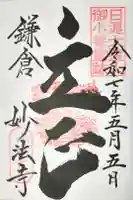 令和七年五月五日
立正
鎌倉
妙法寺